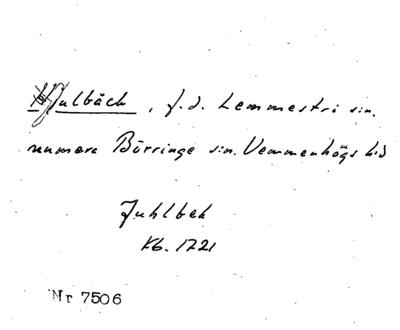 Julbäck, f.d. Lemmeströ sn.
numera Börringe sn. Vemmenhögs hd
Juhlbek
Kb. 1721
Nr 7506